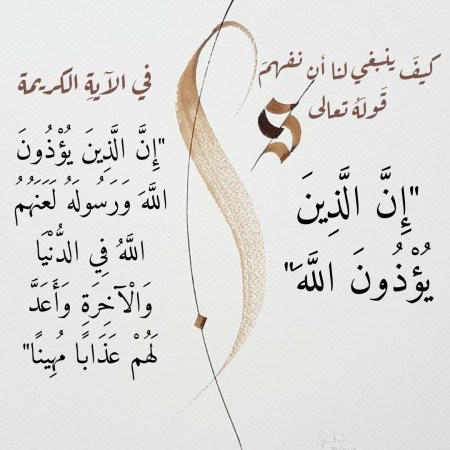 كيفَ ينبغي لنا أن نفهمَ
قَولَهُ تعالى
"إِنَّ الَّذِينَ
يُؤْذُونَ اللَّهَ"
في الآيةِ الكريمة
"إِنَّ الَّذِينَ يُؤْذُونَ
اللَّهَ وَرَسُولَهُ لَعَنَهُمُ
اللَّهُ فِي الدُّنْيَا
وَالْآخِرَةِ وَأَعَدَّ
لَهُمْ عَذَابًا مُهِينًا"